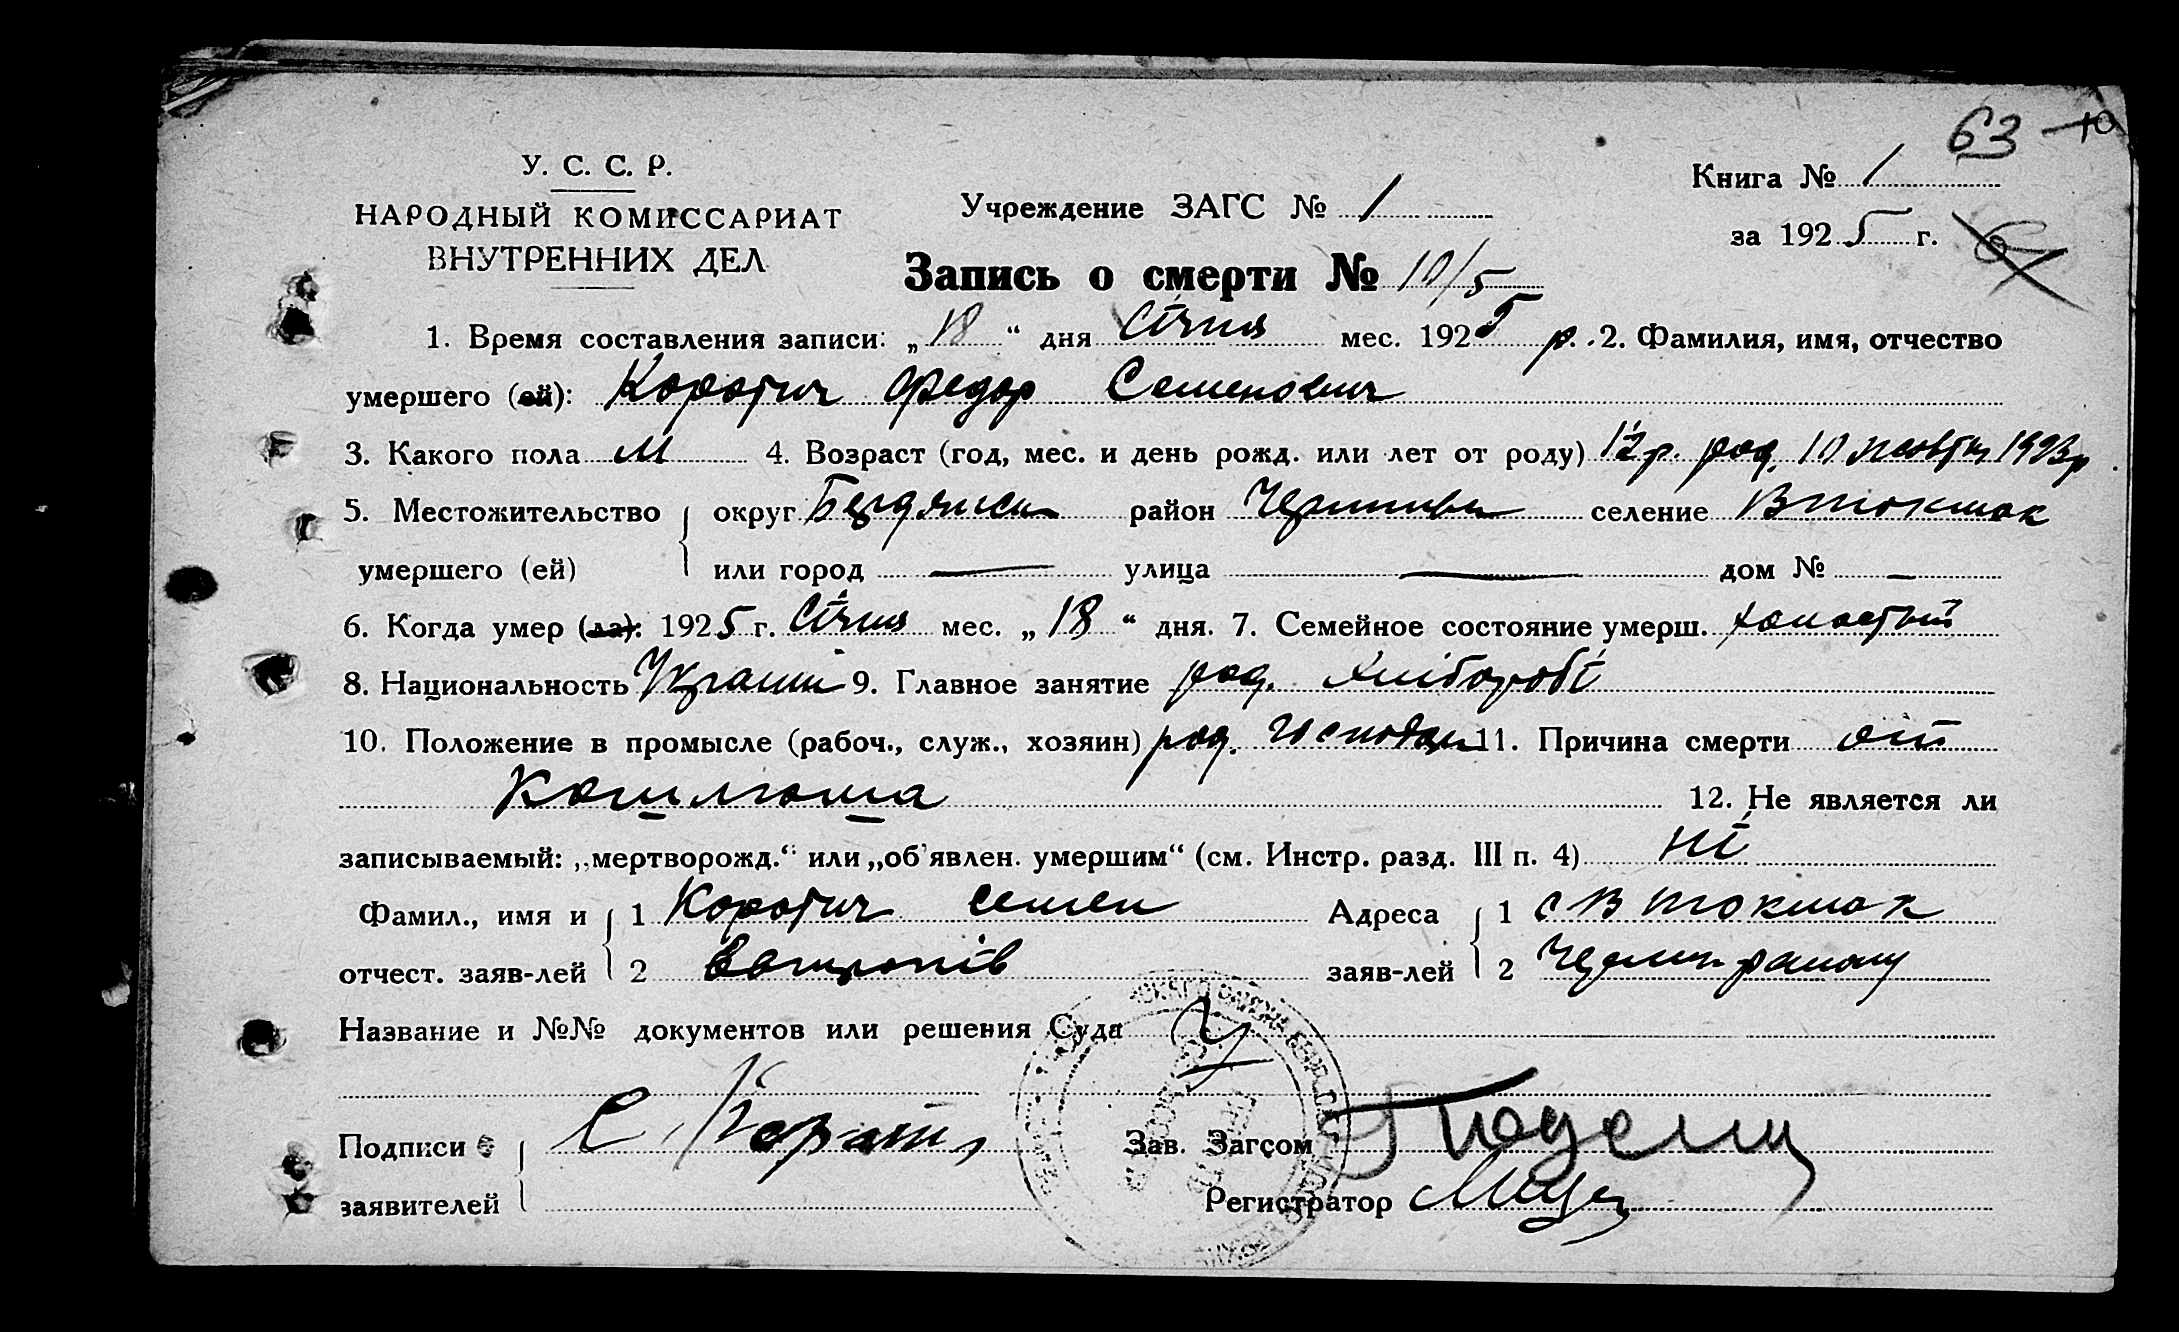 63
У. С. С. Р.
НАРОДНЫЙ КОМИССАРИАТ
ВНУТРЕННИХ ДЕЛ
Учреждение ЗАГС № 1
Книга № 1
за 1925 г.
Запись о смерти № 10/5
1. Время составления записи: „18“ дня Січня мес. 1925 р. 2. Фамилия, имя, отчество
умершего (ей): Коротич Федор Семенович
3. Какого пола М 4. Возраст (год, мес. и день рожд. или лет от роду) род. 10 жовтн 1923р
5. Местожительство округ Бердянськ район Чернигвськ селение В Токмак
умершего (ей) или город — улица — дом № —
6. Когда умер (ла): 1925 г. Січня мес. „18“ дня. 7. Семейное состояние умерш. холостый
8. Национальность Украин 9. Главное занятие род. хліборобі
10. Положение в промысле (рабоч., служ., хозяин) род. господар 11. Причина смерти от
12. Не является ли
записываемый: „мертворожд.“ или „об'явлен. умершим“ (см. Инстр. разд. III п. 4) ні
Фамил., имя и 1 Коротич Семен Адреса 1 с В Токмак
отчест. заяв-лей 2 заяв-лей 2 району
Название и №№ документов или решения Суда
Подписи С. Коротич Зав. Загсом
заявителей Регистратор